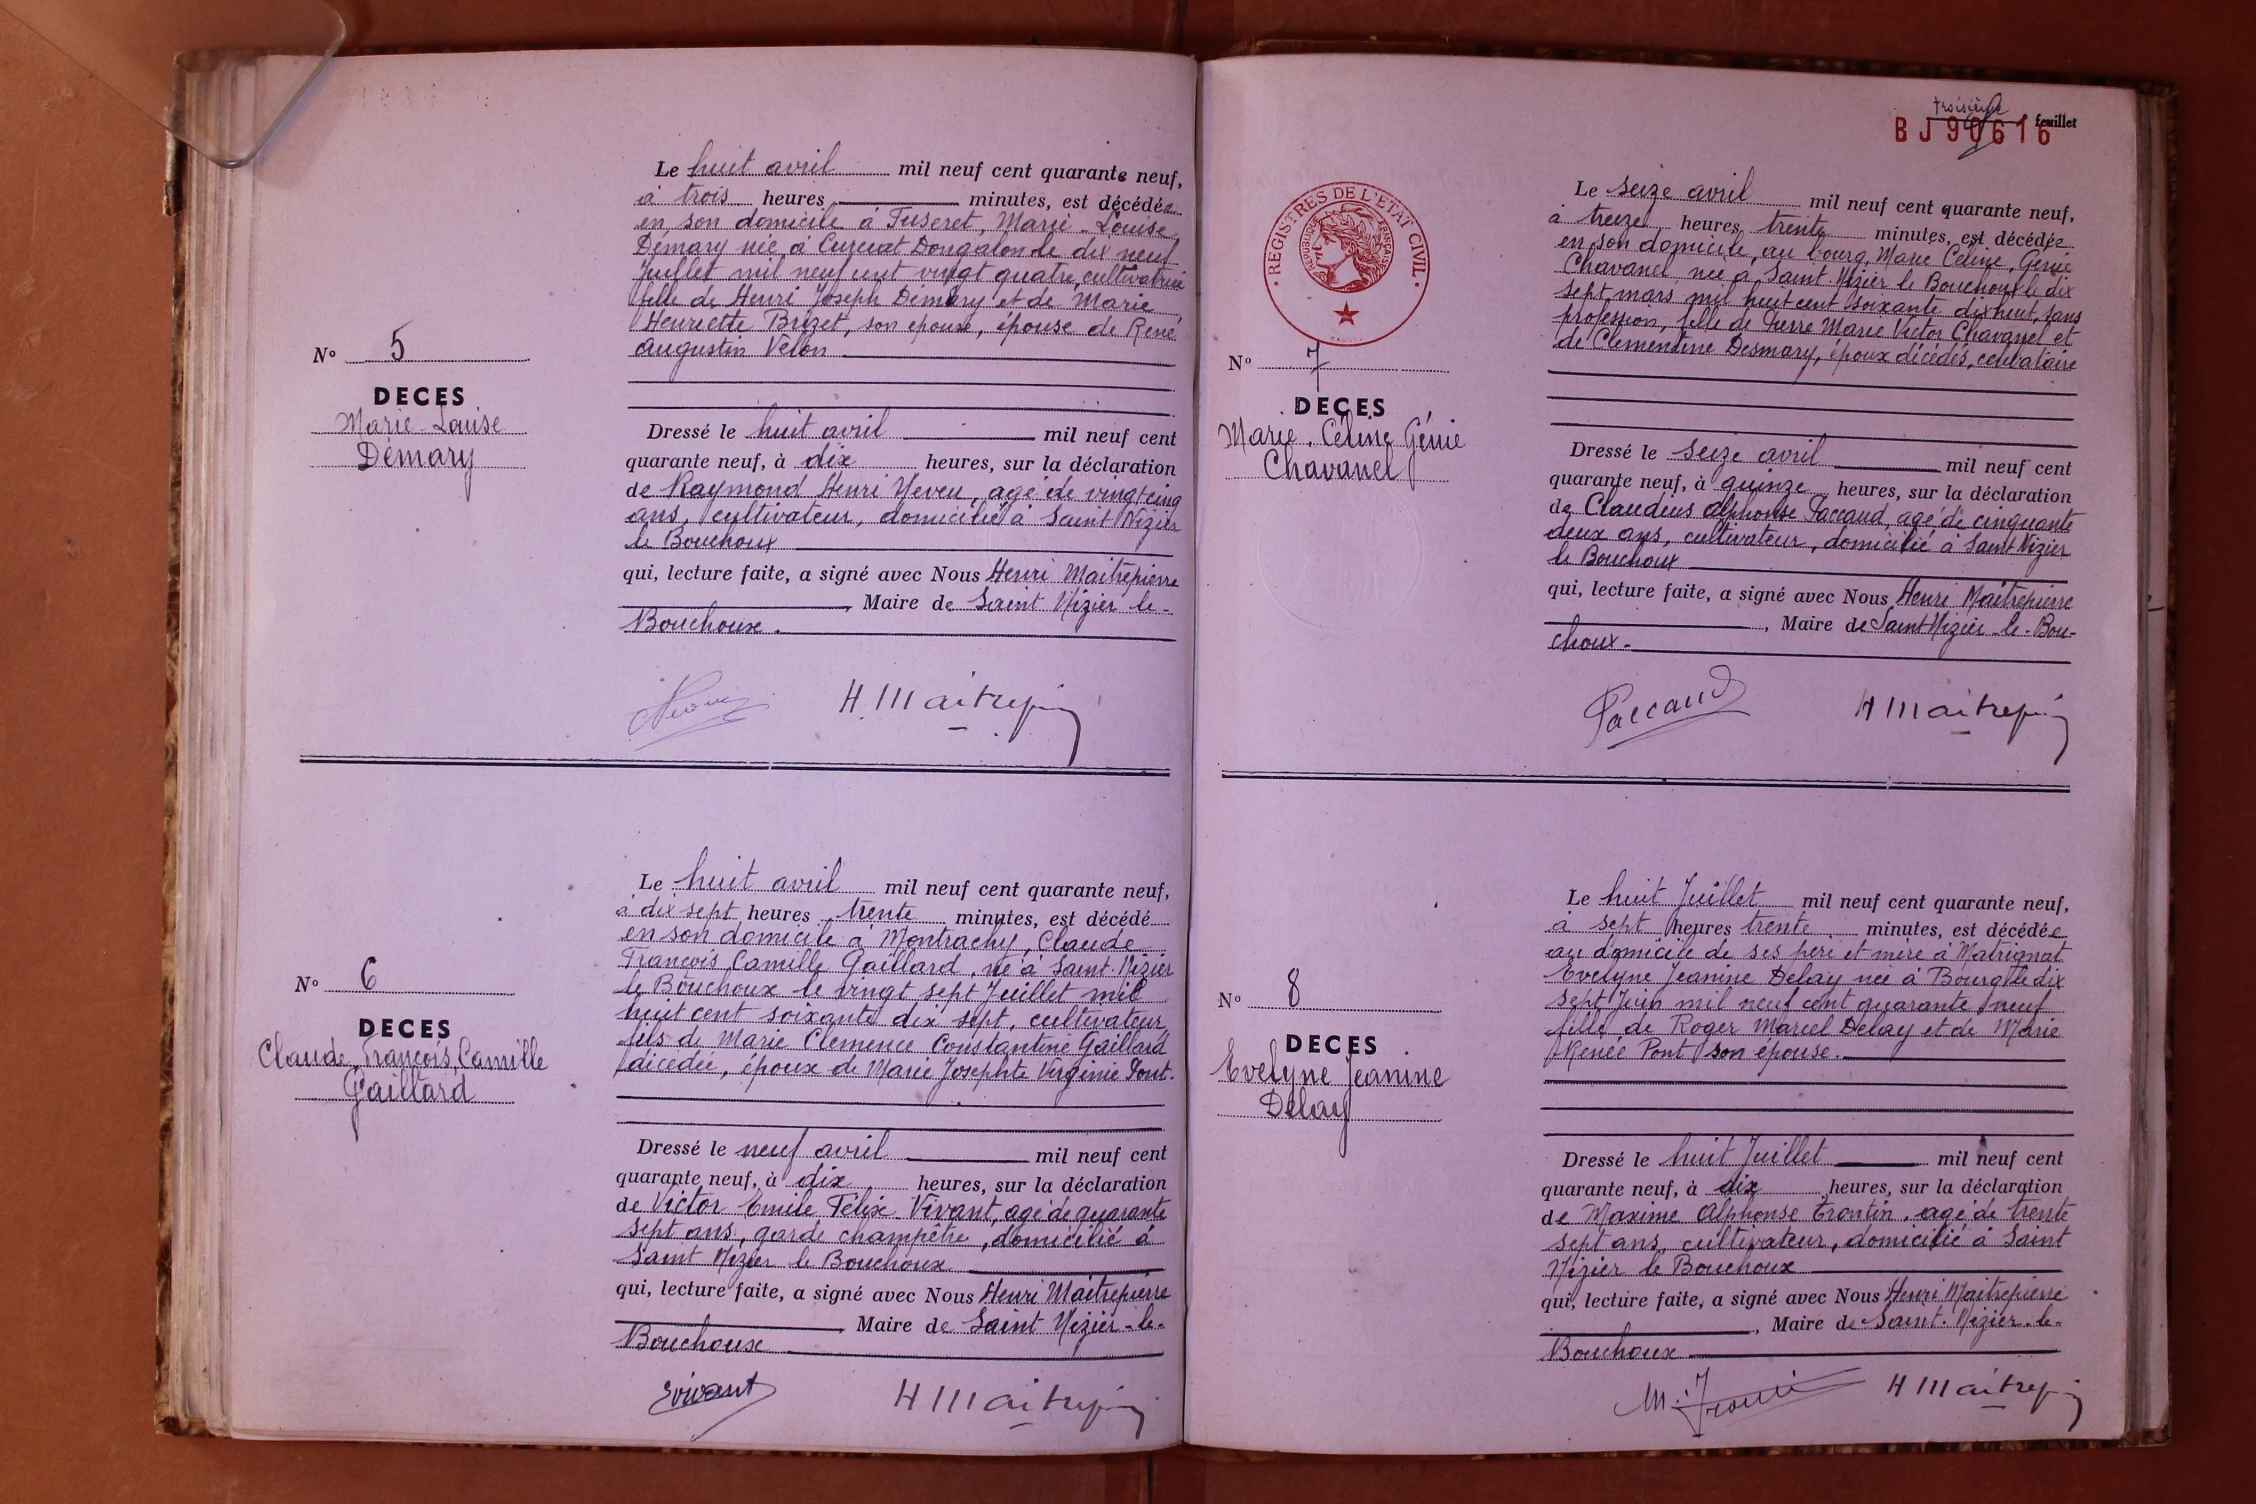 Le huit avril mil neuf cent quarante neuf,
à trois heures minutes, est décédée
en son domicile à Fuseret, Marie-Louise
Démary née à Curciat Dongalon le dix neuf
Juillet mil neuf cent vingt quatre, cultivatrice
fille de Henri Joseph Demary et de Marie
Henriette Brizet, son épouse, épouse de René
Augustin Velon
N° 5
DECES
Marie-Louise
Démary
Dressé le huit avril mil neuf cent
quarante neuf, à dix heures, sur la déclaration
de Raymond Henri Neveu, agé de vingt cinq
ans, cultivateur, domicilié à Saint Nizier
le Bouchoux
qui, lecture faite, a signé avec Nous Henri Maitrepierre
, Maire de Saint Nizier le-
Bouchoux.
H. Maitrepierre
Le huit avril mil neuf cent quarante neuf,
à dix sept heures trente minutes, est décédé
en son domicile à Montrachy, Claude
François Camille Gaillard, né à Saint-Nizier
le Bouchoux le vingt sept Juillet mil
huit cent soixante dix sept, cultivateur,
fils de Marie Clémence Constantine Gaillard
décédée, époux de Marie Josephte Virginie Pont.
N° 6
DECES
Claude, François, Camille
Gaillard
Dressé le neuf avril mil neuf cent
quarante neuf, à dix heures, sur la déclaration
de Victor Emile Félix Vivant, agé de quarante
sept ans, garde champêtre, domicilié à
Saint Nizier le Bouchoux
qui, lecture faite, a signé avec Nous Henri Maitrepierre
, Maire de Saint Nizier-le-
Bouchoux
Evivant H Maitrepierre
troisième feuillet
BJ90616
REGISTRES DE L'ETAT CIVIL
REPUBLIQUE FRANÇAISE
Le seize avril mil neuf cent quarante neuf,
à treize heures trente minutes, est décédée
en son domicile, au bourg, Marie Céline, Génie
Chavanel née à Saint-Nizier le Bouchoux le dix
sept mars mil huit cent soixante dix huit, sans
profession, fille de Pierre Marie Victor Chavanel et
de Clémentine Desmary, époux décédés, célibataire
N° 7
DECES
Marie, Céline, Génie
Chavanel
Dressé le seize avril mil neuf cent
quarante neuf, à quinze heures, sur la déclaration
de Claudius Alphonse Paccaud, agé de cinquante
deux ans, cultivateur, domicilié à Saint Nizier
le Bouchoux
qui, lecture faite, a signé avec Nous Henri Maitrepierre
, Maire de Saint Nizier-le-Bou-
choux.
Paccaud H Maitrepierre
Le huit Juillet mil neuf cent quarante neuf,
à sept heures trente minutes, est décédée
au domicile de ses père et mère à Matrignat
Evelyne Jeanine Delay née à Bourg le dix
sept Juin mil neuf cent quarante neuf
fille de Roger Marcel Delay et de Marie
Renée Pont son épouse.
N° 8
DECES
Evelyne Jeanine
Delay
Dressé le huit Juillet mil neuf cent
quarante neuf, à dix heures, sur la déclaration
de Maxime Alphonse, agé de trente
sept ans, cultivateur, domicilié à Saint
Nizier le Bouchoux
qui, lecture faite, a signé avec Nous Henri Maitrepierre
, Maire de Saint-Nizier-le-
Bouchoux
H Maitrepierre